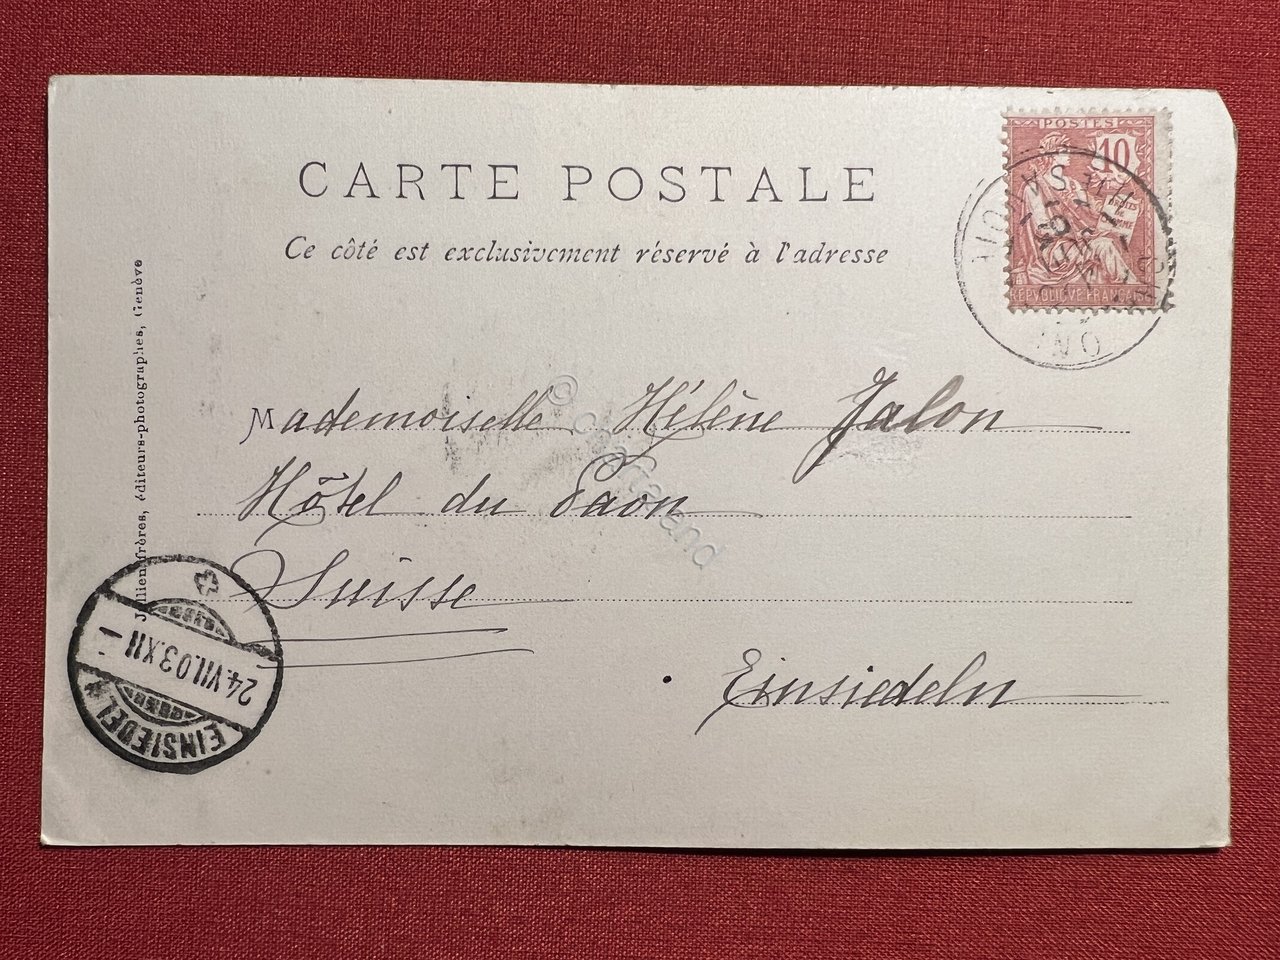 CARTE POSTALE
Ce côté est exclusivement réservé à l'adresse
POSTES
10
REPVBLIQVE FRANÇAISE
Jullien frères, éditeurs-photographes, Genève
Mademoiselle Hélène Jalon
Hôtel du Paon
Suisse
Einsiedeln
EINSIEDELN
24.VII.03.XII
© cartaland